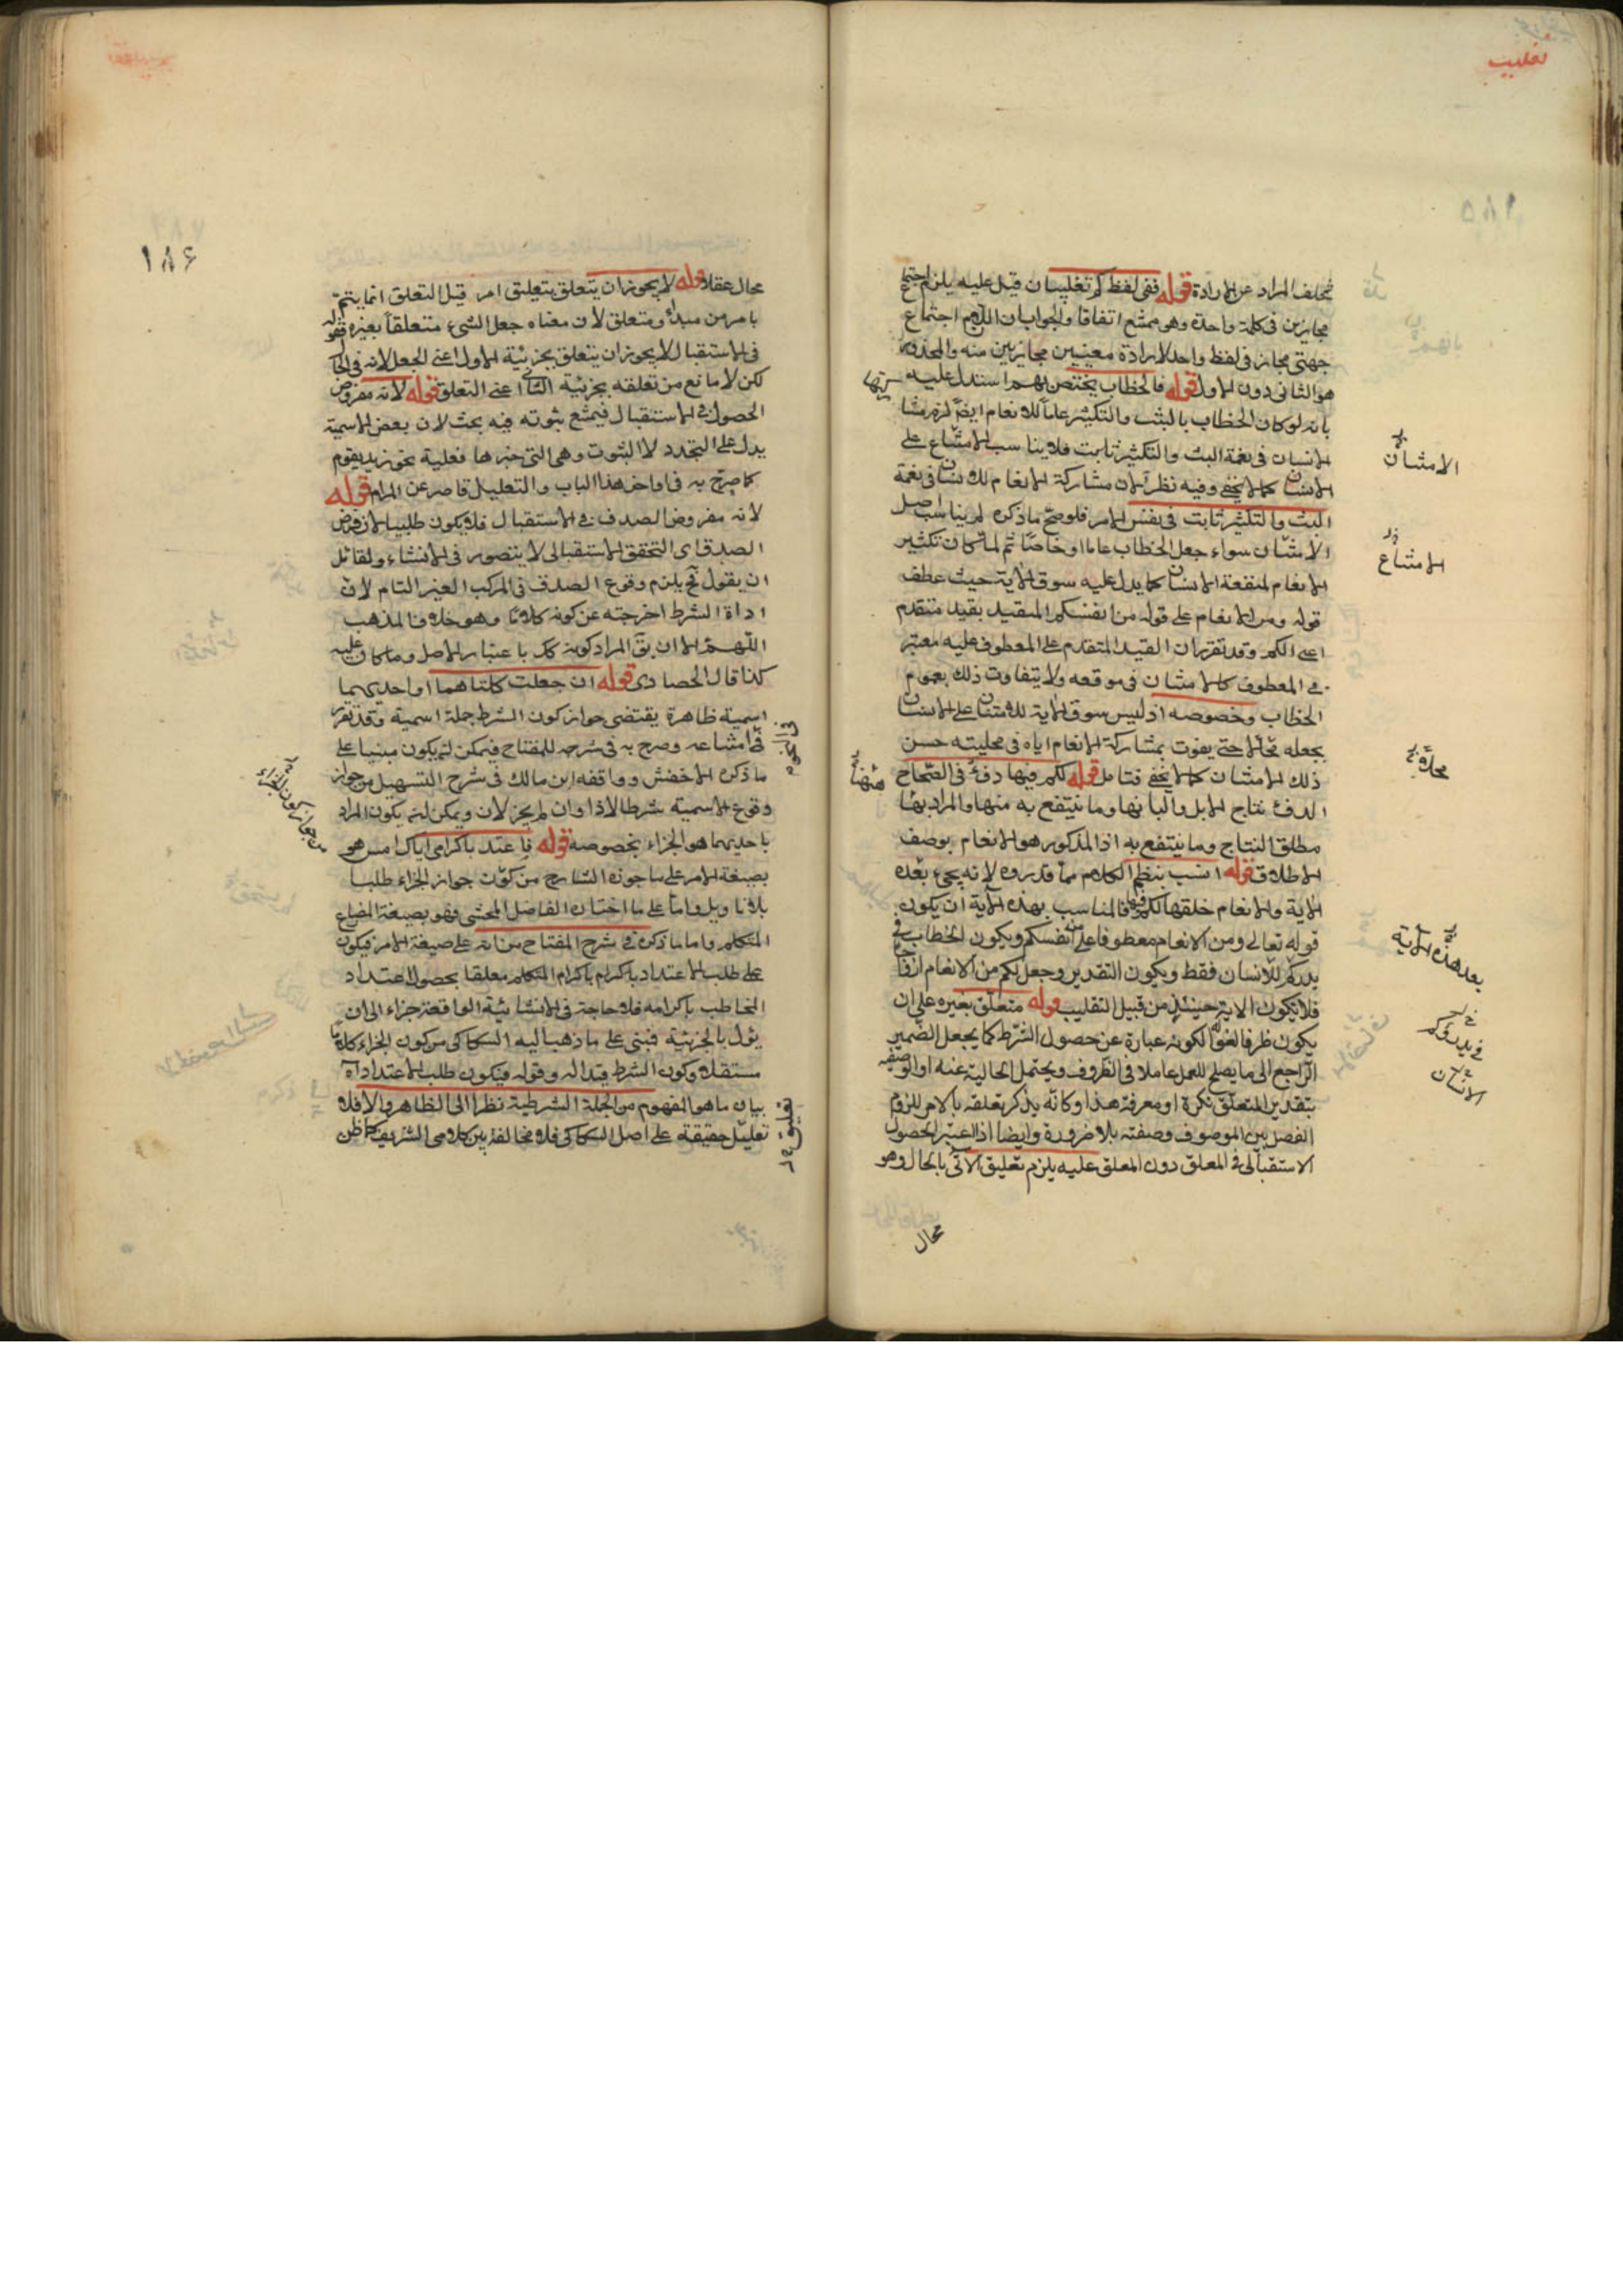 تغليب
تخلف المراد عن الارادة قوله ففي لفظ كم تغليبان قيل عليه يلزم اجتماع
مجازين في كلمة واحدة وهو ممتنع اتفاقا والجواب ان اللازم اجتماع
جهتي مجاز في لفظ واحد لا ارادة معنيين مجازيين منه والمحذور
هو الثاني دون الاول قوله فالخطاب يختص بهم استدل عليه
بانه لو كان الخطاب بالبث والتكثير عاما للانعام ايضا لزم
الانسان في نعمة البث والتكثير ثابت فلا يناسب الامتناع على
الانسان كما لا يخفى وفيه نظر لان مشاركة الانعام للانسان في نعمة
البث والتكثير ثابت في نفس الامر فلو صح ما ذكره لم يناسب اصل
الامتنان سواء جعل الخطاب عاما او خاصا ثم لما كان تكثير
الانعام لمنفعة الانسان كما يدل عليه سوق الاية حيث عطف
قوله ومن الانعام على قوله من انفسكم المقيد بقيد متقدم
اعني لكم وقد تقرر ان القيد المتقدم على المعطوف عليه معتبر
في المعطوف كان الامتنان في موقعه ولا يتفاوت ذلك بعموم
الخطاب وخصوصه اذ ليس سوق الاية للامتنان على الانسان
بجعله محالا حتى يفوت بمشاركة الانعام اياه في محليته حسن
ذلك الامتنان كما لا يخفى فتامل قوله لكم فيها دفء في الصحاح
الدفء نتاج الابل والبانها وما ينتفع به منها والمراد بها
مطلق النتاج وما ينتفع به اذ المذكور هو الانعام بوصف
الاطلاق قوله انسب بنظم الكلام مما قدروه لانه يجيء بعده
الاية والانعام خلقها لكم فيها فالمناسب بهذه الاية ان يكون
قوله تعالى ومن الانعام معطوفا على من انفسكم ويكون الخطاب في
يذركم للانسان فقط ويكون التقدير وجعل لكم من الانعام ازواجا
فلا يكون الاية حينئذ من قبيل التغليب قوله متعلق بغيره على ان
يكون ظرفا لغوا لكونه عبارة عن حصول الشرط كما يجعل الضمير
الراجع الى ما يصلح للعمل عاملا في الظروف ويحتمل الحالية عنه او الوصفية
بتقدير المتعلق نكرة او معرفة هذا وكانه يذكر تعلقه بالامر للزوم
الفصل بين الموصوف وصفته بلا ضرورة وايضا اذا اعتبر الحصول
الاستقبالي في المعلق دون المعلق عليه يلزم تعليق الاتي بالحال وهو
محال
الامتنان
الامتناع
محلا
بعد هذه الاية
في يذروكم
الانسان
١٨٦
محال عقلا قوله لا يجوز ان يتعلق بتعليق امر قيل التعلق انما يتم
بامرين مبدأ ومتعلق لان معناه جعل الشيء متعلقا بغيره فقوله
في الاستقبال لا يجوز ان يتعلق بجزئية الاول اعني الجعل لانه في الحال
لكن لا مانع من تعلقه بجزئية الثاني اعني التعلق قوله لانه مفروض
الحصول في الاستقبال فيمتنع ثبوته فيه بحث لان بعض الاسمية
يدل على التجدد لا الثبوت وهي التي خبرها فعلية نحو زيد يقوم
كما صرح به في اواخر هذا الباب والتعليل قاصر عن المرام قوله
لانه مفروض الصدق في الاستقبال فلا يكون طلبيا لان فرض
الصدق اي التحقق الاستقبالي لا يتصور في الانشاء ولقائل
ان يقول ح يلزم وقوع الصدق في المركب الغير التام لان
اداة الشرط اخرجته عن كونه كلاما وهو خلاف المذهب
اللهم الا ان يق المراد كونه كك باعتبار الاصل وما كان عليه
كذا قال الحصاري قوله ان جعلت كلتاهما او احديهما
اسمية ظاهره يقتضي جواز كون الشرط جملة اسمية وقد تقرر
في امتناعه وصرح به في شرحه للمفتاح فيمكن ان يكون مبنيا على
ما ذكره الاخفش ووافقه ابن مالك في شرح التسهيل من جواز
وقوع الاسمية شرطا لاذا وان لم يجز لان ويمكن ان يكون المراد
باحديهما هو الجزاء بخصوصه قوله فاعتد باكرامي اياك امس هو
بصيغة الامر على ما جوزه الشارح من كون جواز الجزاء طلبا
بلا تاويل واما على ما اختاره الفاضل المحشي فهو بصيغة المضارع
المتكلم واما ما ذكره في شرح المفتاح من انه على صيغة الامر فيكون
على طلب الاعتداد باكرام المتكلم معلقا بحصول اعتداد
المخاطب باكرامه فلا حاجة في الانشائية الواقعة جزاء الى ان
يؤل بالخبرية فبني على ما ذهب اليه السكاكي من كون الجزاء كلاما
مستقلا وكون الشرط قيدا له وقوله فيكون طلب الاعتداد اه
بيان ما هو المفهوم من الجملة الشرطية نظرا الى الظاهر والا فلا
تعليق حقيقة على اصل السكاكي فلا مخالفة بين كلامي الشريف كما ظن
من جواز كون الجزاء
تعليق